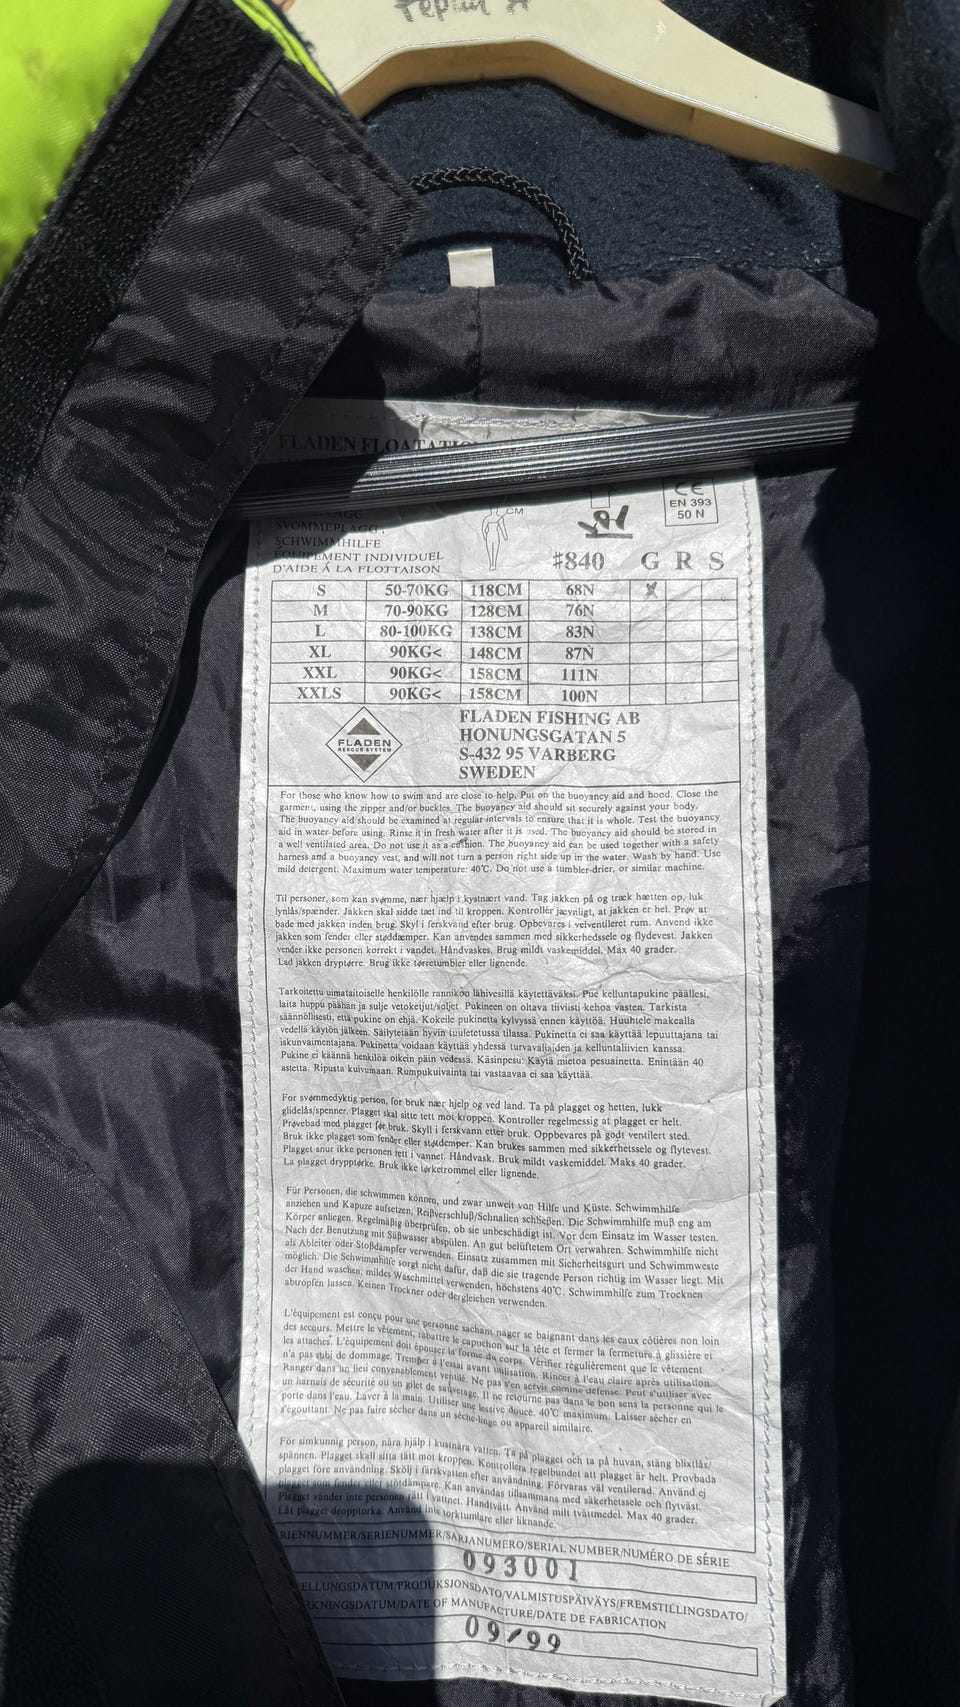 FLADEN FLOATATIO
SVØMMEPLAGG
SCHWIMMHILFE
ÉQUIPEMENT INDIVIDUEL
D'AIDE Á LA FLOTTAISON
CM
CE
EN 393
50 N
#840 G R S
S 50-70KG 118CM 68N X
M 70-90KG 128CM 76N
L 80-100KG 138CM 83N
XL 90KG< 148CM 87N
XXL 90KG< 158CM 111N
XXLS 90KG< 158CM 100N
FLADEN
RESCUE SYSTEM
FLADEN FISHING AB
HONUNGSGATAN 5
S-432 95 VARBERG
SWEDEN
For those who know how to swim and are close to help. Put on the buoyancy aid and hood. Close the
garment, using the zipper and/or buckles. The buoyancy aid should sit securely against your body.
The buoyancy aid should be examined at regular intervals to ensure that it is whole. Test the buoyancy
aid in water before using. Rinse it in fresh water after it is used. The buoyancy aid should be stored in
a well ventilated area. Do not use it as a cushion. The buoyancy aid can be used together with a safety
harness and a buoyancy vest, and will not turn a person right side up in the water. Wash by hand. Use
mild detergent. Maximum water temperature: 40°C. Do not use a tumbler-drier, or similar machine.
Til personer, som kan svømme, nær hjælp i kystnært vand. Tag jakken på og træk hætten op, luk
lynlås/spænder. Jakken skal sidde tæt ind til kroppen. Kontrollér jævnligt, at jakken er hel. Prøv at
bade med jakken inden brug. Skyl i ferskvand efter brug. Opbevares i velventileret rum. Anvend ikke
jakken som fender eller støddæmper. Kan anvendes sammen med sikkerhedssele og flydevest. Jakken
vender ikke personen korrekt i vandet. Håndvaskes. Brug mildt vaskemiddel. Max 40 grader.
Lad jakken dryptørre. Brug ikke tørretumbler eller lignende.
Tarkoitettu uimataitoiselle henkilölle rannikon lähivesillä käytettäväksi. Pue kelluntapukine päällesi,
laita huppu päähän ja sulje vetoketjut/soljet. Pukineen on oltava tiiviisti kehoa vasten. Tarkista
säännöllisesti, että pukine on ehjä. Kokeile pukinetta kylvyssä ennen käyttöä. Huuhtele makealla
vedellä käytön jälkeen. Säilytetään hyvin tuuletetussa tilassa. Pukinetta ei saa käyttää lepuuttajana tai
iskunvaimentajana. Pukinetta voidaan käyttää yhdessä turvavaljaiden ja kelluntaliivien kanssa.
Pukine ei käännä henkilöä oikein päin vedessä. Käsinpesu: Käytä mietoa pesuainetta. Enintään 40
astetta. Ripusta kuivumaan. Rumpukuivainta tai vastaavaa ei saa käyttää.
For svømmedyktig person, for bruk nær hjelp og ved land. Ta på plagget og hetten, lukk
glidelås/spenner. Plagget skal sitte tett mot kroppen. Kontroller regelmessig at plagget er helt.
Prøvebad med plagget før bruk. Skyll i ferskvann etter bruk. Oppbevares på godt ventilert sted.
Bruk ikke plagget som fender eller støtdemper. Kan brukes sammen med sikkerhetssele og flytevest.
Plagget snur ikke personen rett i vannet. Håndvask. Bruk mildt vaskemiddel. Maks 40 grader.
La plagget drypptørke. Bruk ikke tørketrommel eller lignende.
Für Personen, die schwimmen können, und zwar unweit von Hilfe und Küste. Schwimmhilfe
anziehen und Kapuze aufsetzen, Reißverschluß/Schnallen schließen. Die Schwimmhilfe muß eng am
Körper anliegen. Regelmäßig überprüfen, ob sie unbeschädigt ist. Vor dem Einsatz im Wasser testen.
Nach der Benutzung mit Süßwasser abspülen. An gut belüftetem Ort verwahren. Schwimmhilfe nicht
als Ableiter oder Stoßdämpfer verwenden. Einsatz zusammen mit Sicherheitsgurt und Schwimmweste
möglich. Die Schwimmhilfe sorgt nicht dafür, daß die sie tragende Person richtig im Wasser liegt. Mit
der Hand waschen, mildes Waschmittel verwenden, höchstens 40°C. Schwimmhilfe zum Trocknen
abtropfen lassen. Keinen Trockner oder dergleichen verwenden.
L'équipement est conçu pour une personne sachant nager se baignant dans les eaux côtières non loin
des secours. Mettre le vêtement, rabattre le capuchon sur la tête et fermer la fermeture à glissière et
les attaches. L'équipement doit épouser la forme du corps. Vérifier régulièrement que le vêtement
n'a pas subi de dommage. Tremper à l'essai avant utilisation. Rincer à l'eau claire après utilisation.
Ranger dans un lieu convenablement ventilé. Ne pas s'en servir comme défense. Peut s'utiliser avec
un harnais de sécurité ou un gilet de sauvetage. Il ne retourne pas dans le bon sens la personne qui le
porte dans l'eau. Laver à la main. Utiliser une lessive douce. 40°C maximum. Laisser sécher en
s'égouttant. Ne pas faire sécher dans un sèche-linge ou appareil similaire.
För simkunnig person, nära hjälp i kustnära vatten. Ta på plagget och ta på huvan, stäng blixtlås/
spännen. Plagget skall sitta tätt mot kroppen. Kontrollera regelbundet att plagget är helt. Provbada
plagget före användning. Skölj i färskvatten efter användning. Förvaras väl ventilerad. Använd ej
plagget som fender eller stötdämpare. Kan användas tillsammans med säkerhetssele och flytväst.
Plagget vänder inte personen rätt i vattnet. Handtvätt. Använd milt tvättmedel. Max 40 grader.
Låt plagget dropptorka. Använd inte torktumlare eller liknande.
RIENNUMMER/SERIENUMMER/SARJANUMERO/SERIAL NUMBER/NUMÉRO DE SÉRIE
093001
ELLUNGSDATUM/PRODUKSJONSDATO/VALMISTUSPÄIVÄYS/FREMSTILLINGSDATO/
RKNINGSDATUM/DATE OF MANUFACTURE/DATE DE FABRICATION
09/99